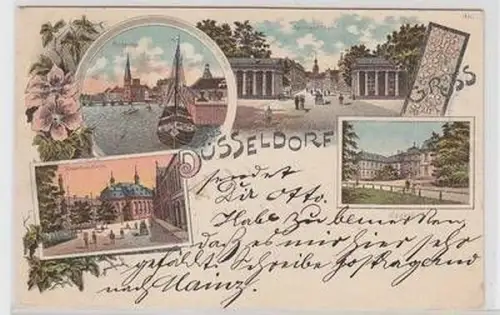 GRUSS
DÜSSELDORF
sendet
Dir Otto.
Habe zu bemerken
daß es mir hier sehr
gefällt. Schreibe postlagernd
nach Mainz.